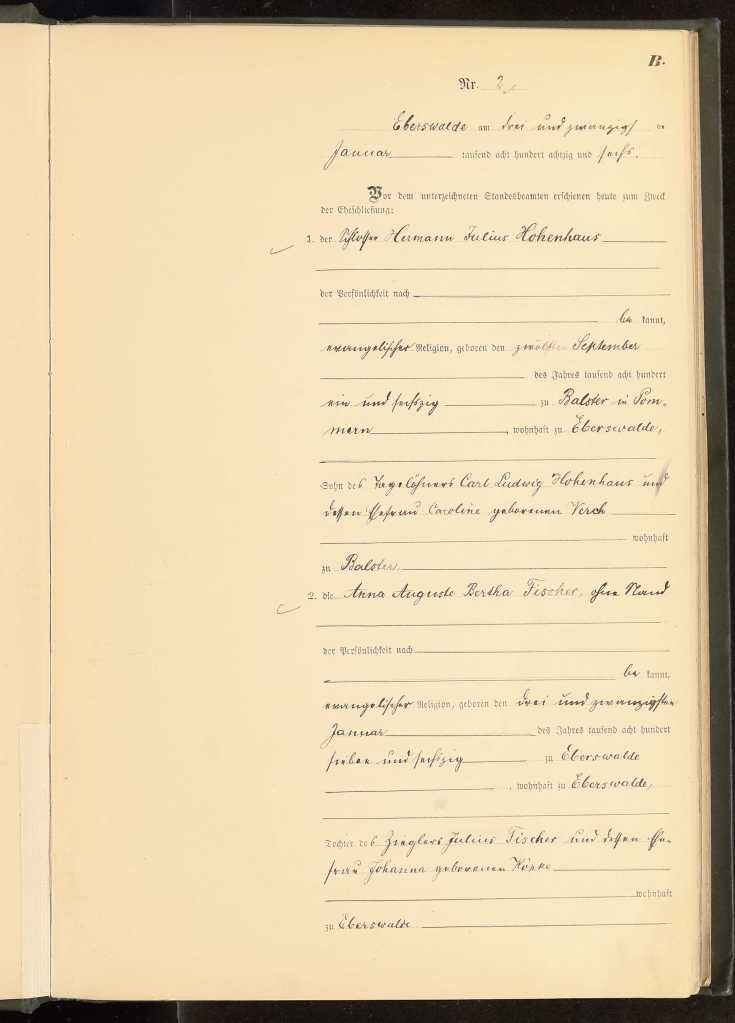 B.
Nr. 2
Eberswalde am drei und zwanzigsten
Januar tausend acht hundert achtzig und sechs.
Vor dem unterzeichneten Standesbeamten erschienen heute zum Zweck
der Eheschließung:
1. der Schlosser Hermann Julius Hohenhaus
der Persönlichkeit nach
be kannt,
evangelischer Religion, geboren den zwölften September
des Jahres tausend acht hundert
ein und sechszig zu Balster in Pom-
mern, wohnhaft zu Eberswalde,
Sohn des Tagelöhners Carl Ludwig Hohenhaus und
dessen Ehefrau Caroline geborenen Verch
wohnhaft
zu Balster
2. die Anna Auguste Bertha Fischer, ohne Stand
der Persönlichkeit nach
be kannt,
evangelischer Religion, geboren den drei und zwanzigsten
Januar des Jahres tausend acht hundert
sieben und sechszig zu Eberswalde
, wohnhaft zu Eberswalde,
Tochter des Zieglers Julius Fischer und dessen Ehe-
frau Johanna geborenen Köpke
wohnhaft
zu Eberswalde